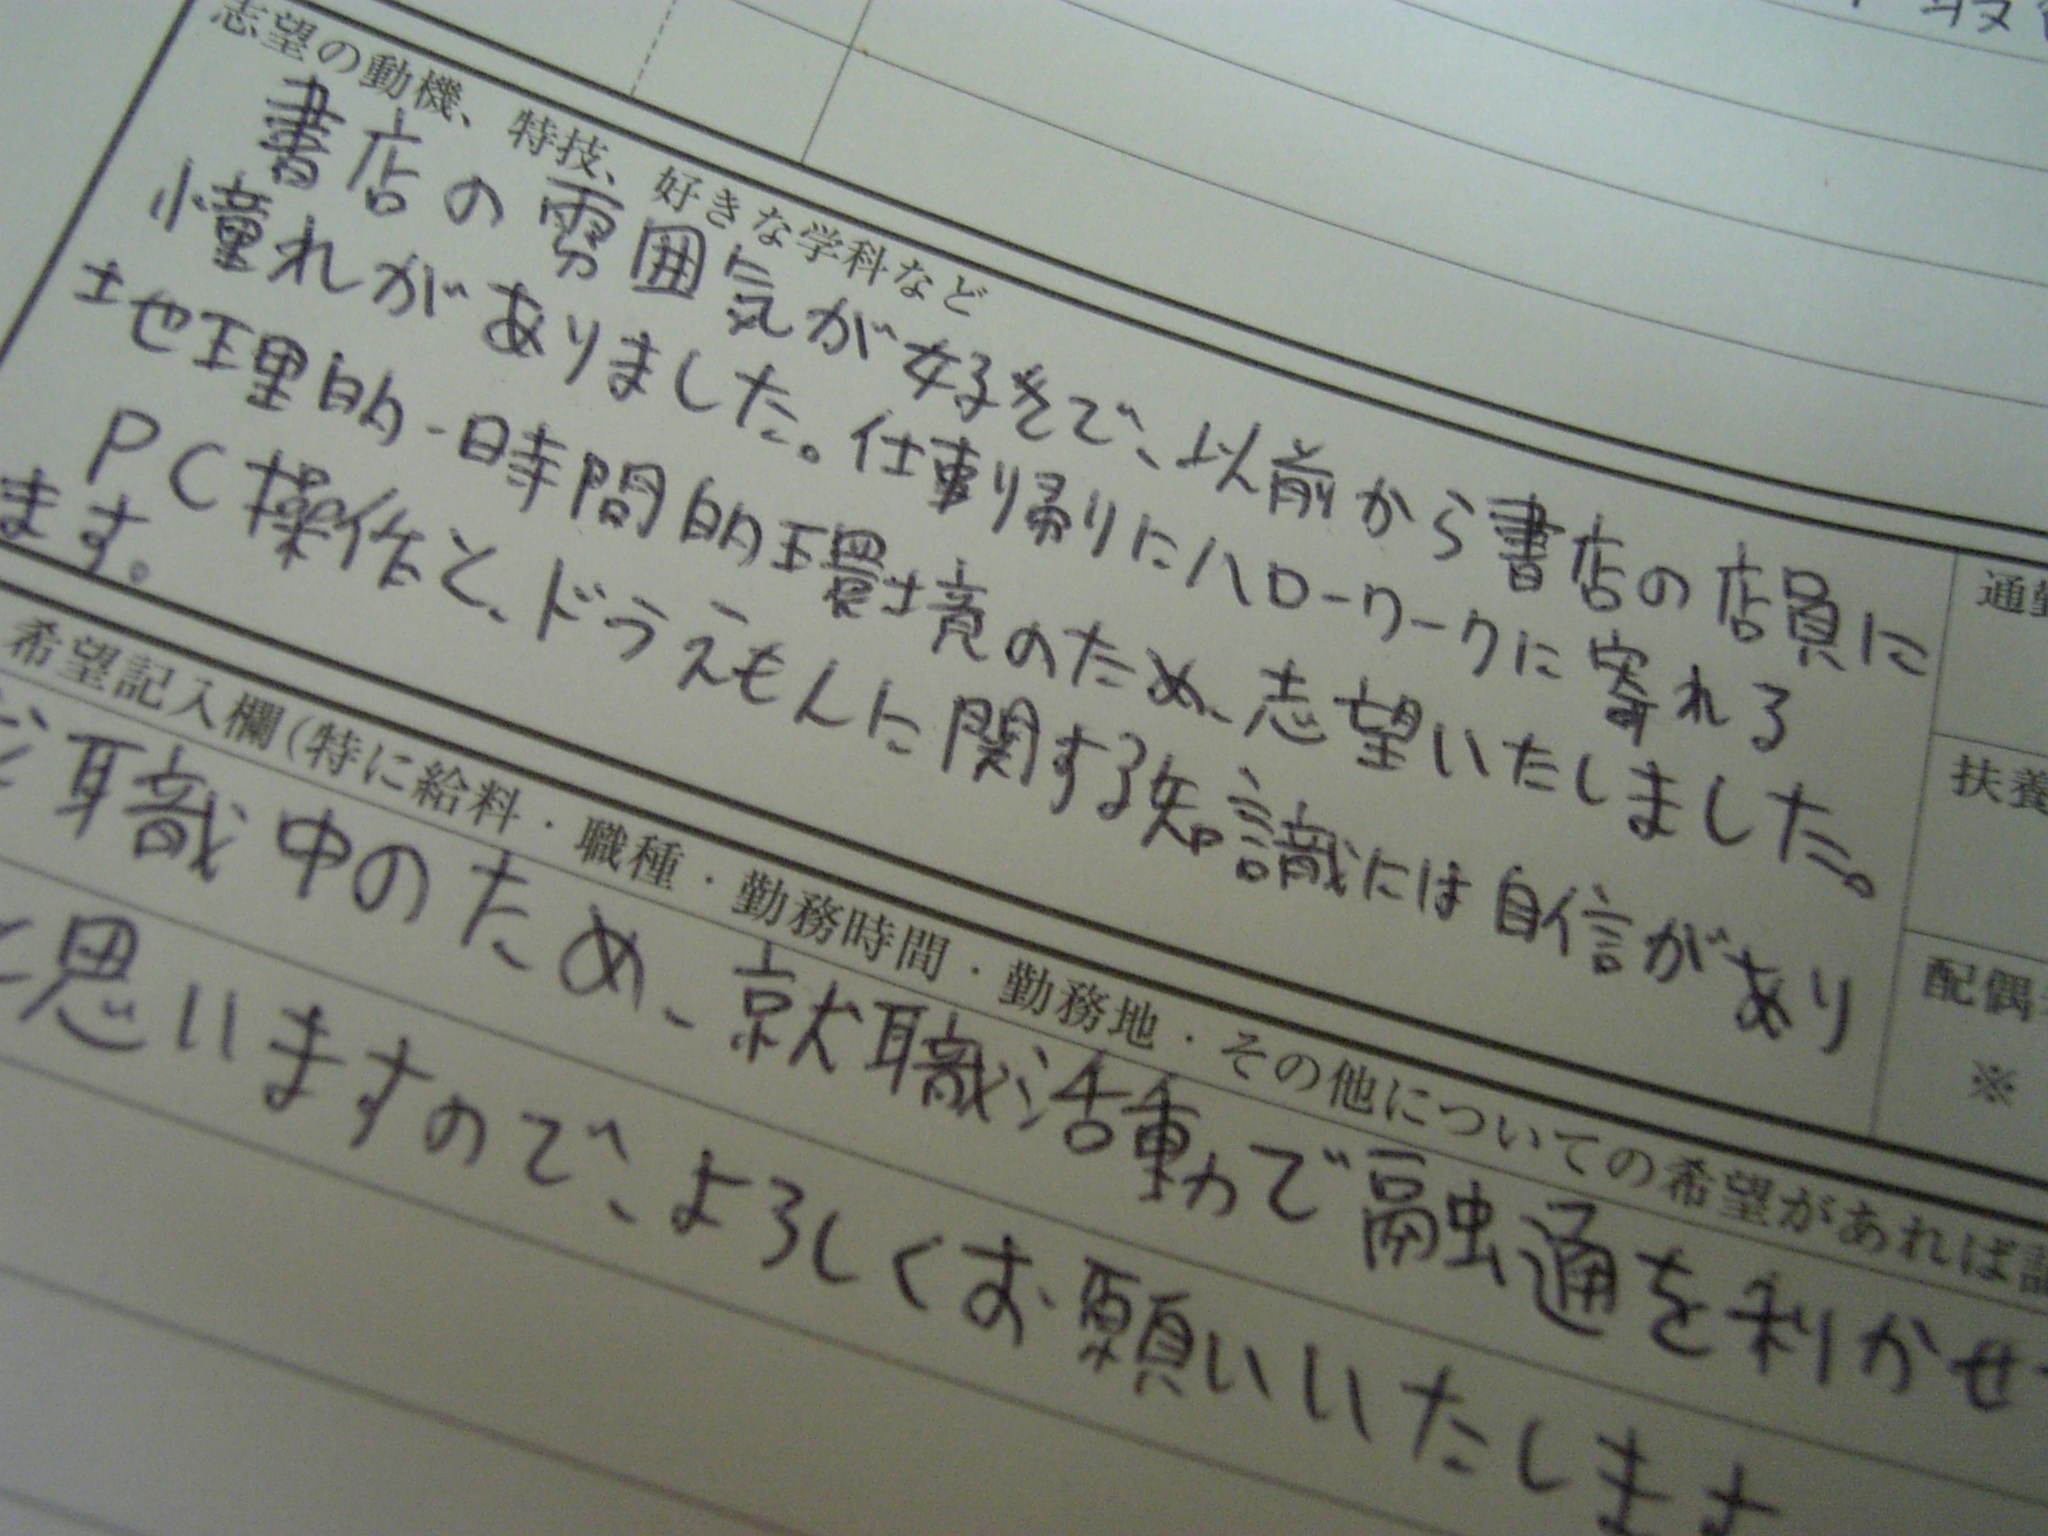 志望の動機、特技、好きな学科など
書店の雰囲気が好きで、以前から書店の店員に
憧れがありました。仕事帰りにハローワークに寄れる
地理的・時間的環境のため、志望いたしました。
PC操作と、ドラえもんに関する知識には自信があり
ます。
通勤
扶養
配偶
※
希望記入欄(特に給料・職種・勤務時間・勤務地・その他についての希望があれば記
職中のため、就職活動で融通を利かせ
と思いますので、よろしくお願いいたします